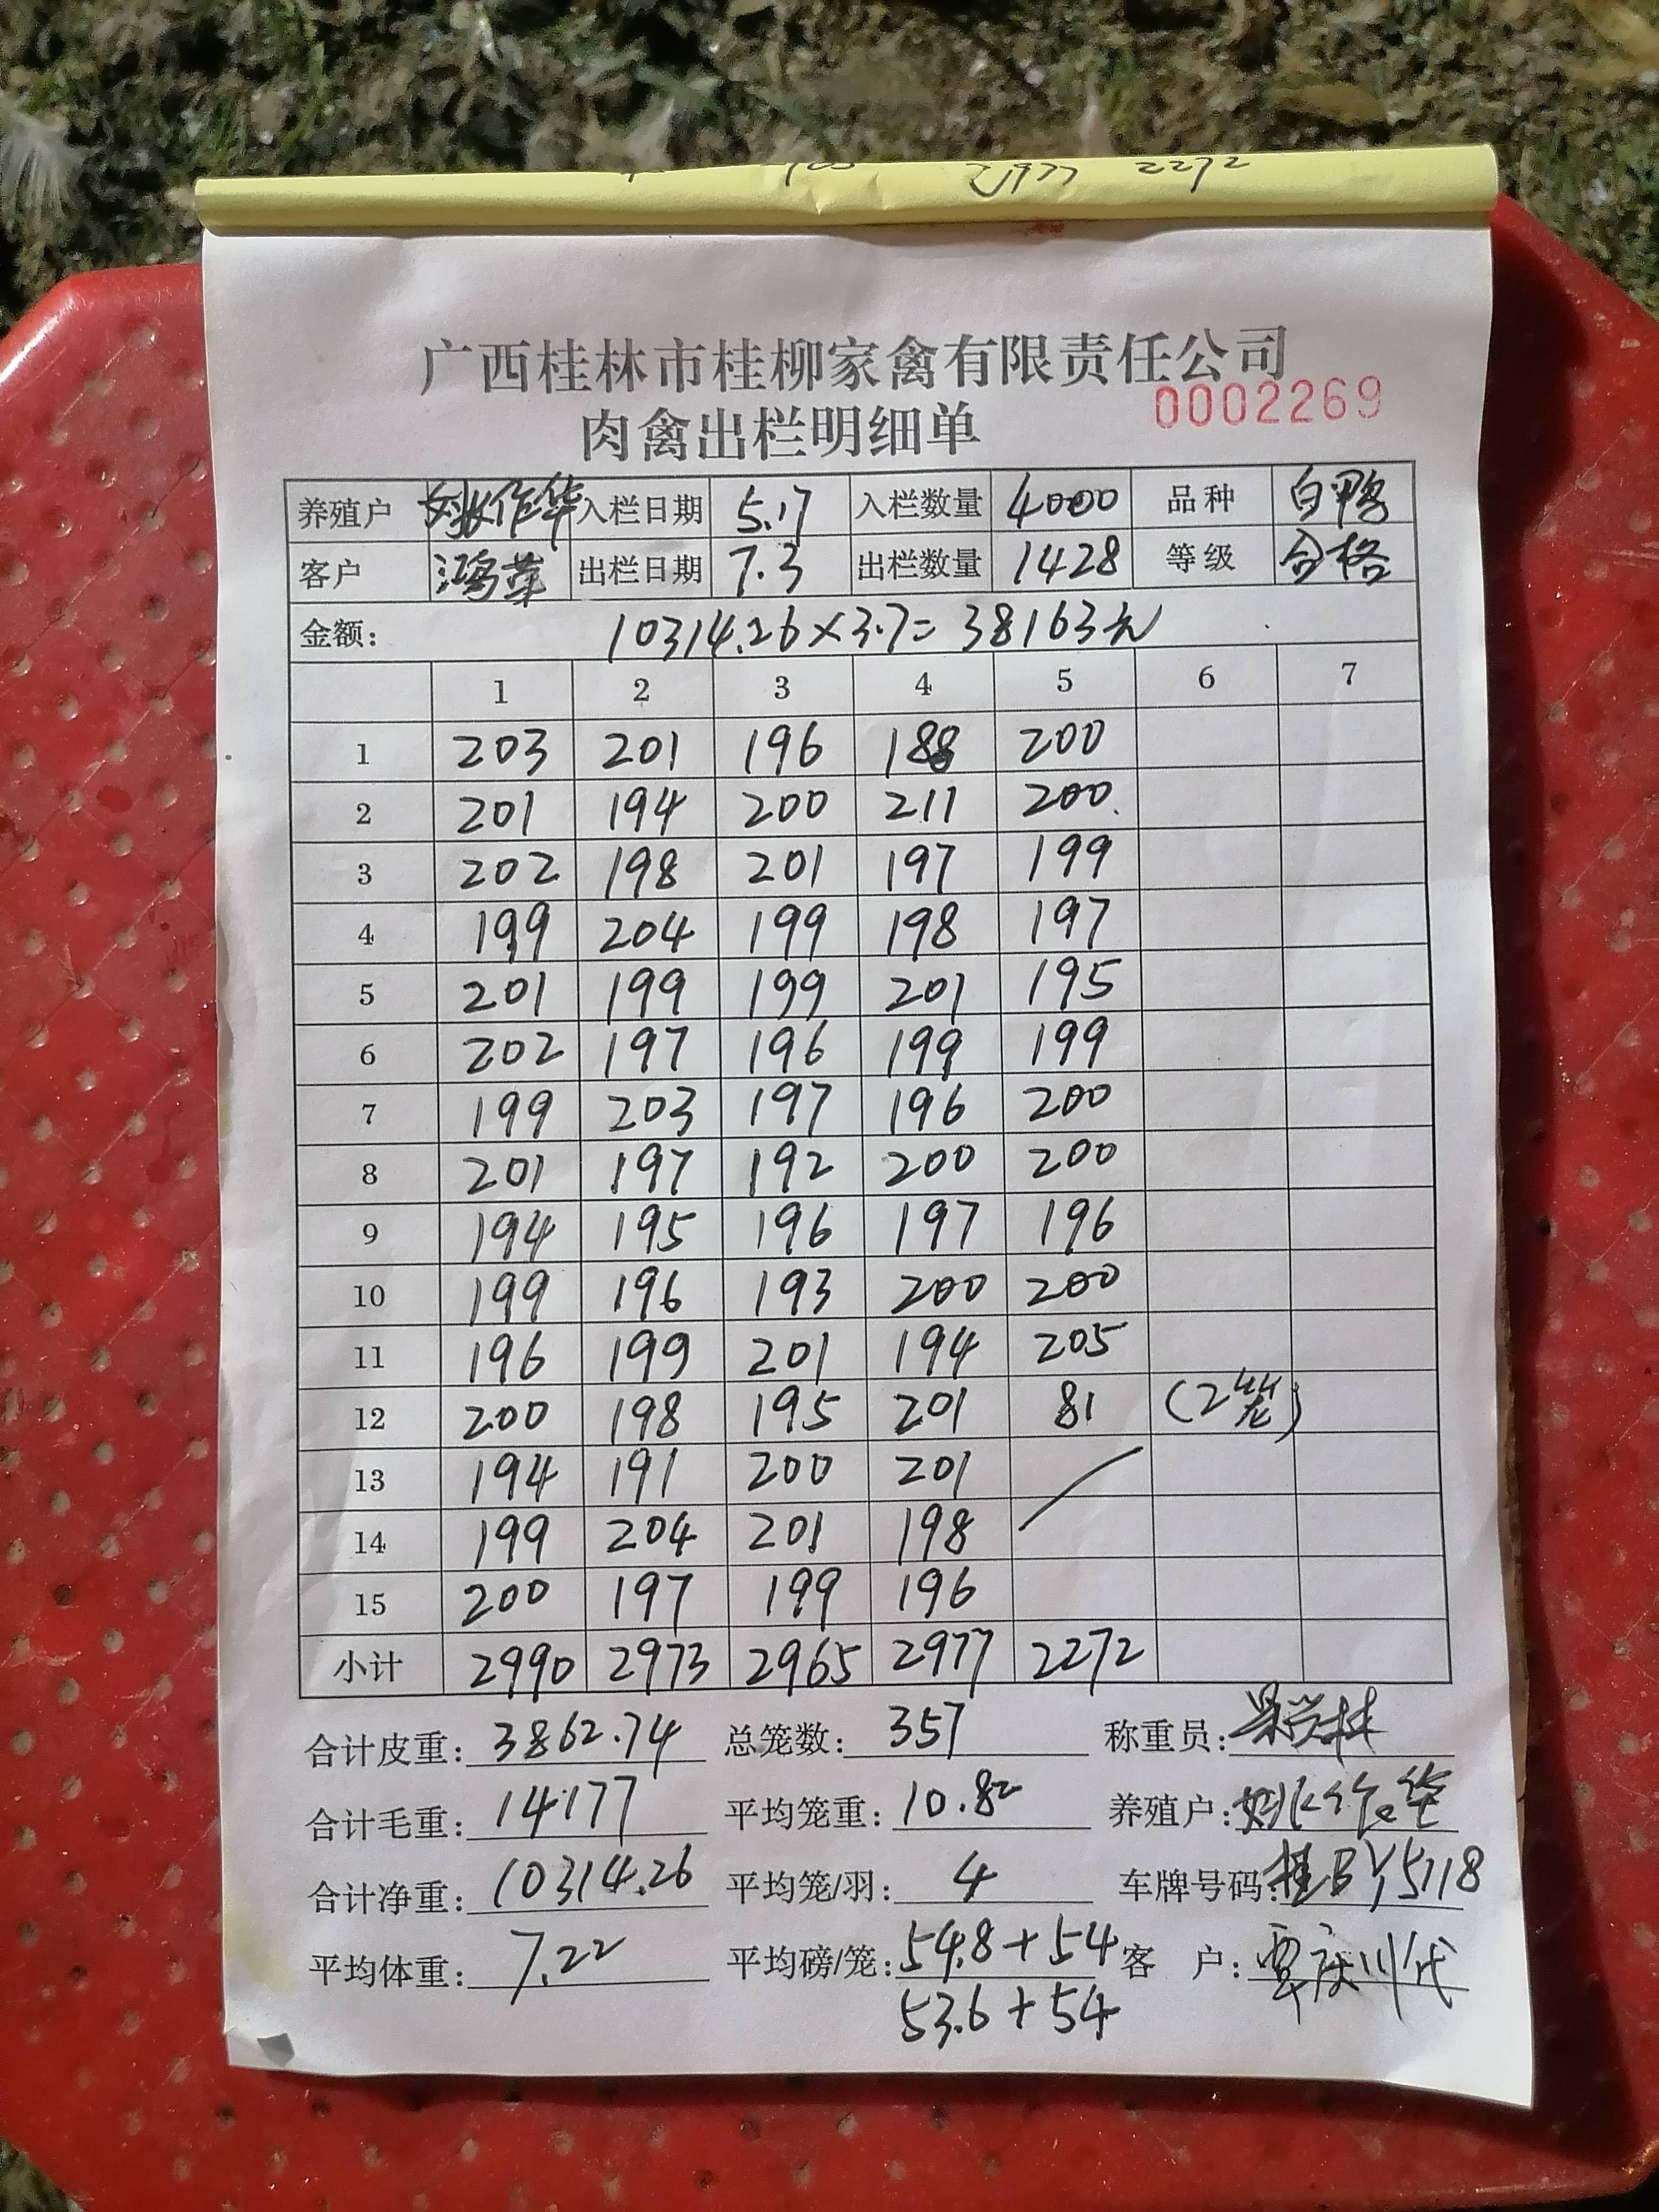 2977 2272
广西桂林市桂柳家禽有限责任公司
0002269
肉禽出栏明细单
养殖户 姚作华 入栏日期 5.17 入栏数量 4000 品种 白鸭
客户 鸿华 出栏日期 7.3 出栏数量 1428 等级 合格
金额: 10314.26×3.7=38163元
1 2 3 4 5 6 7
1 203 201 196 188 200
2 201 194 200 211 200
3 202 198 201 197 199
4 199 204 199 198 197
5 201 199 199 201 195
6 202 197 196 199 199
7 199 203 197 196 200
8 201 197 192 200 200
9 194 195 196 197 196
10 199 196 193 200 200
11 196 199 201 194 205
12 200 198 195 201 81 (2笼)
13 194 191 200 201
14 199 204 201 198
15 200 197 199 196
小计 2990 2973 2965 2977 2272
合计皮重: 3862.74 总笼数: 357 称重员:
合计毛重: 14177 平均笼重: 10.82 养殖户: 姚作华
合计净重: 10314.26 平均笼/羽: 4 车牌号码: 桂BY5118
平均体重: 7.22 平均磅/笼: 54.8+54 客 户:
53.6+54